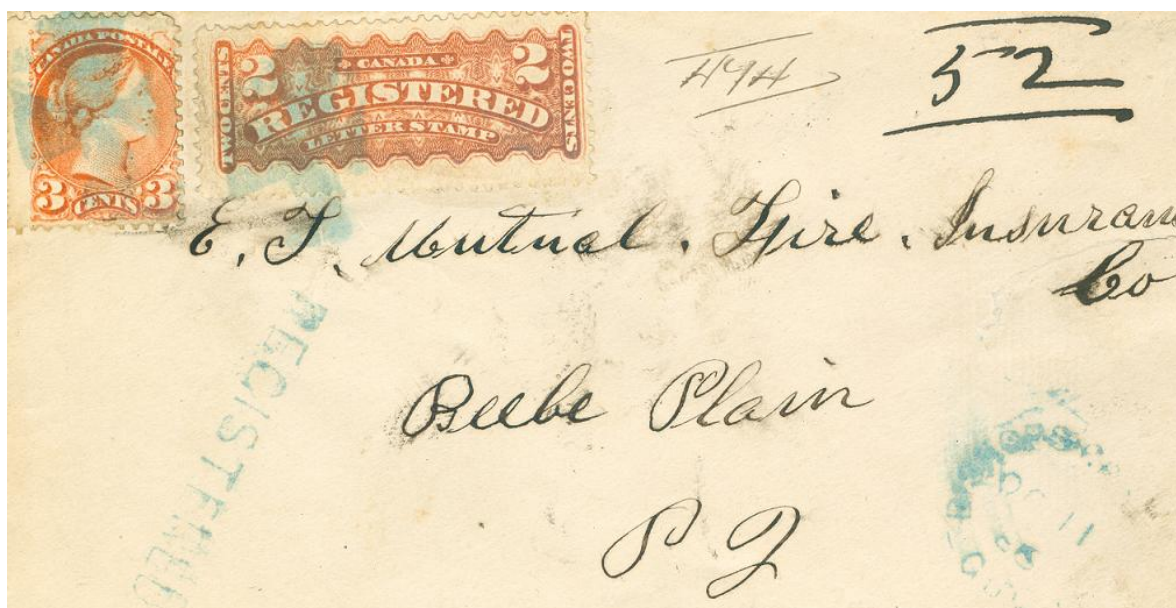 CANADA POSTAGE
3 CENTS 3
2 CANADA 2
TWO CENTS
REGISTERED
LETTER STAMP
TWO CENTS
52
E. T. Mutual. Fire. Insuran
Co
Beebe Plain
P Q
REGISTERED